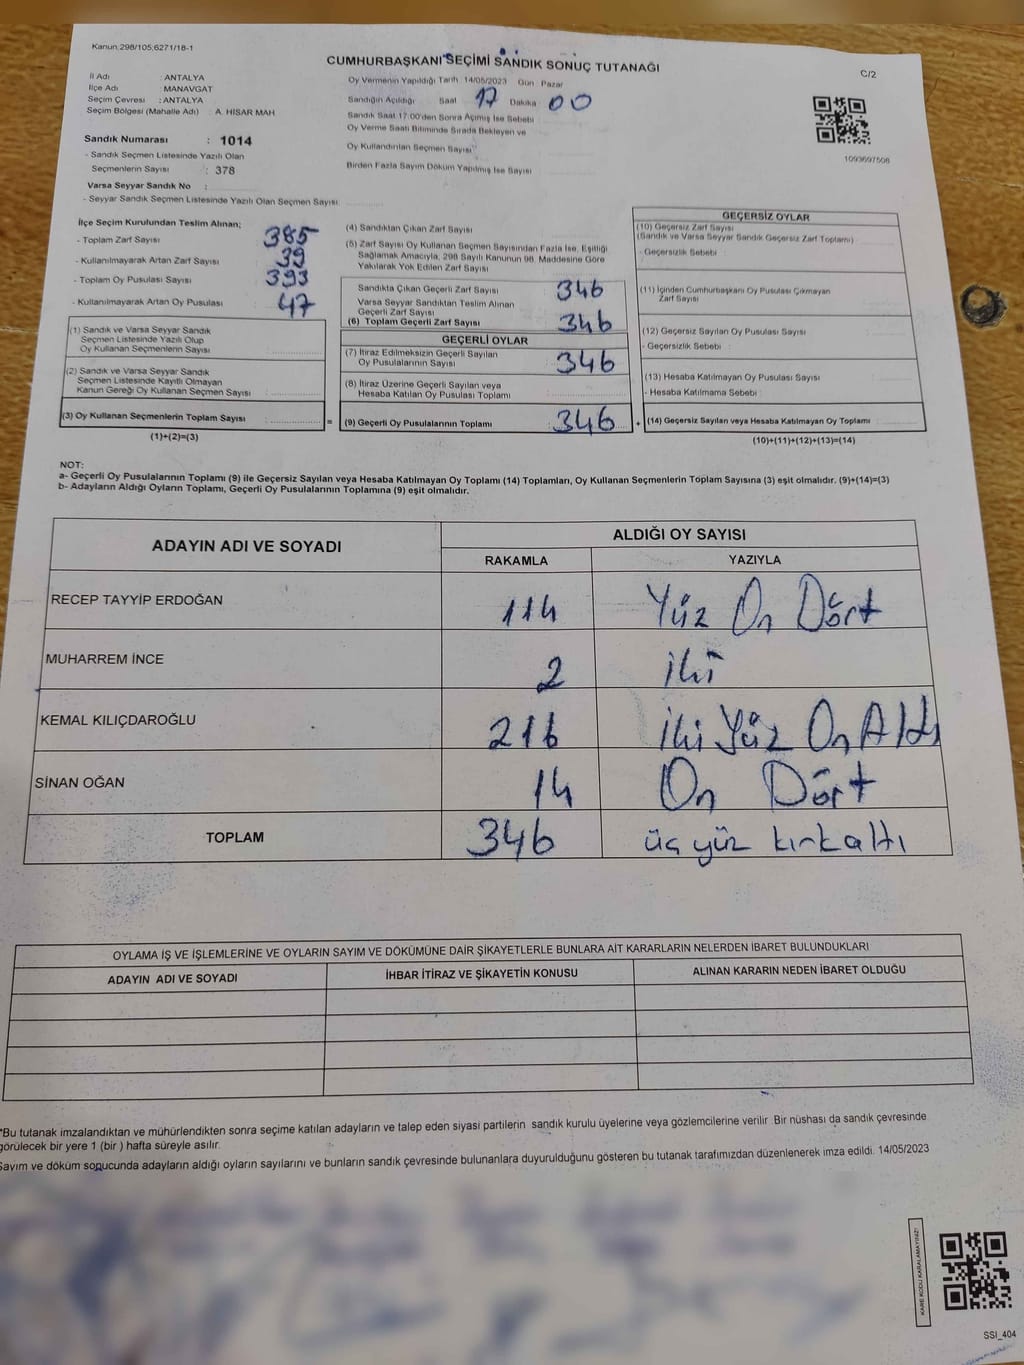 Kanun:298/105;6271/18-1
CUMHURBAŞKANI SEÇİMİ SANDIK SONUÇ TUTANAĞI
C/2
İl Adı : ANTALYA
İlçe Adı : MANAVGAT
Seçim Çevresi : ANTALYA
Seçim Bölgesi (Mahalle Adı) : A. HISAR MAH
Oy Vermenin Yapıldığı Tarih 14/05/2023 Gün Pazar
Sandığın Açıldığı Saat 17 Dakika 00
Sandık Saat 17:00'den Sonra Açımış İse Sebebi
Oy Verme Saati Bitiminde Sırada Bekleyen ve
Oy Kullandırılan Seçmen Sayısı
Birden Fazla Sayım Döküm Yapılmış İse Sayısı
1093697506
Sandık Numarası : 1014
- Sandık Seçmen Listesinde Yazılı Olan
Seçmenlerin Sayısı : 378
Varsa Seyyar Sandık No :
- Seyyar Sandık Seçmen Listesinde Yazılı Olan Seçmen Sayısı
İlçe Seçim Kurulundan Teslim Alınan;
- Toplam Zarf Sayısı 385
- Kullanılmayarak Artan Zarf Sayısı 39
- Toplam Oy Pusulası Sayısı 393
- Kullanılmayarak Artan Oy Pusulası 47
(1) Sandık ve Varsa Seyyar Sandık
Seçmen Listesinde Yazılı Olup
Oy Kullanan Seçmenlerin Sayısı
(2) Sandık ve Varsa Seyyar Sandık
Seçmen Listesinde Kayıtlı Olmayan
Kanun Gereği Oy Kullanan Seçmen Sayısı
(3) Oy Kullanan Seçmenlerin Toplam Sayısı
(1)+(2)=(3)
(4) Sandıktan Çıkan Zarf Sayısı
(5) Zarf Sayısı Oy Kullanan Seçmen Sayısından Fazla İse, Eşitliği
Sağlamak Amacıyla, 298 Sayılı Kanunun 98. Maddesine Göre
Yakılarak Yok Edilen Zarf Sayısı
Sandıkta Çıkan Geçerli Zarf Sayısı 346
Varsa Seyyar Sandıktan Teslim Alınan
Geçerli Zarf Sayısı
(6) Toplam Geçerli Zarf Sayısı 346
GEÇERLİ OYLAR
(7) İtiraz Edilmeksizin Geçerli Sayılan
Oy Pusulalarının Sayısı 346
(8) İtiraz Üzerine Geçerli Sayılan veya
Hesaba Katılan Oy Pusulası Toplamı
= (9) Geçerli Oy Pusulalarının Toplamı 346
GEÇERSİZ OYLAR
(10) Geçersiz Zarf Sayısı
(Sandık ve Varsa Seyyar Sandık Geçersiz Zarf Toplamı)
- Geçersizlik Sebebi :
(11) İçinden Cumhurbaşkanı Oy Pusulası Çıkmayan
Zarf Sayısı
(12) Geçersiz Sayılan Oy Pusulası Sayısı
- Geçersizlik Sebebi :
(13) Hesaba Katılmayan Oy Pusulası Sayısı
- Hesaba Katılmama Sebebi :
+ (14) Geçersiz Sayılan veya Hesaba Katılmayan Oy Toplamı
(10)+(11)+(12)+(13)=(14)
NOT:
a- Geçerli Oy Pusulalarının Toplamı (9) ile Geçersiz Sayılan veya Hesaba Katılmayan Oy Toplamı (14) Toplamları, Oy Kullanan Seçmenlerin Toplam Sayısına (3) eşit olmalıdır. (9)+(14)=(3)
b- Adayların Aldığı Oyların Toplamı, Geçerli Oy Pusulalarının Toplamına (9) eşit olmalıdır.
ADAYIN ADI VE SOYADI
ALDIĞI OY SAYISI
RAKAMLA YAZIYLA
RECEP TAYYİP ERDOĞAN 114 Yüz On Dört
MUHARREM İNCE 2 iki
KEMAL KILIÇDAROĞLU 216 iki Yüz On Altı
SİNAN OĞAN 14 On Dört
TOPLAM 346 üç yüz kırkaltı
OYLAMA İŞ VE İŞLEMLERİNE VE OYLARIN SAYIM VE DÖKÜMÜNE DAİR ŞİKAYETLERLE BUNLARA AİT KARARLARIN NELERDEN İBARET BULUNDUKLARI
ADAYIN ADI VE SOYADI İHBAR İTİRAZ VE ŞİKAYETİN KONUSU ALINAN KARARIN NEDEN İBARET OLDUĞU
*Bu tutanak imzalandıktan ve mühürlendikten sonra seçime katılan adayların ve talep eden siyasi partilerin sandık kurulu üyelerine veya gözlemcilerine verilir. Bir nüshası da sandık çevresinde
görülecek bir yere 1 (bir ) hafta süreyle asılır.
Sayım ve döküm sonucunda adayların aldığı oyların sayılarını ve bunların sandık çevresinde bulunanlara duyurulduğunu gösteren bu tutanak tarafımızdan düzenlenerek imza edildi. 14/05/2023
KARE KODU KARALAMAYINIZ!
SSİ_404